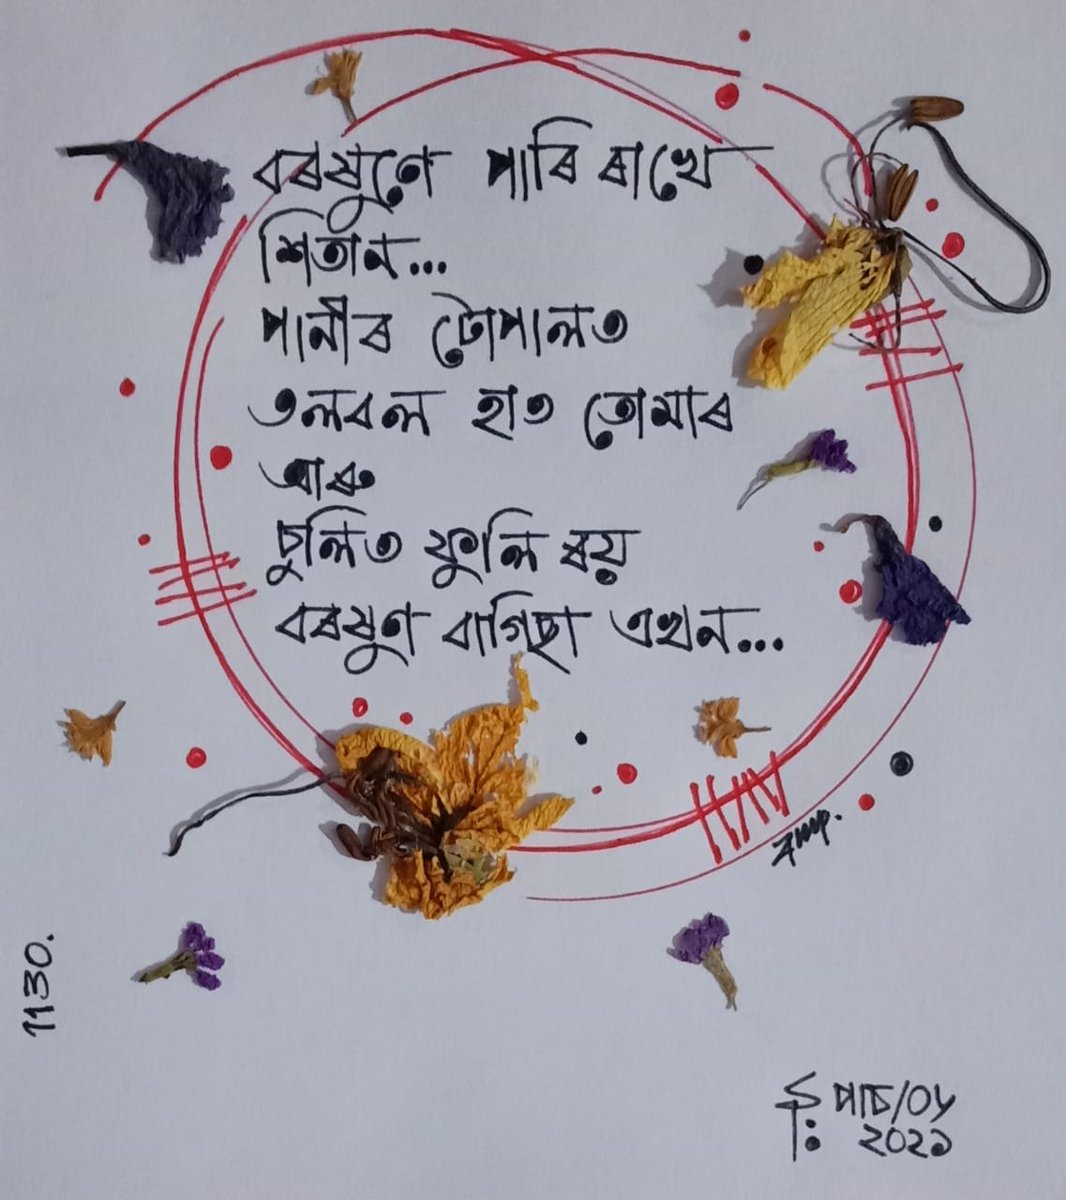 বৰষুণে পাৰি ৰাখে
শিতান...
পানীৰ টোপালত
তলবল হাত তোমাৰ
আৰু
চুলিত ফুলি ৰয়
বৰষুণ বাগিছা এখন...
1130.
পাচ/০৮
২০২১